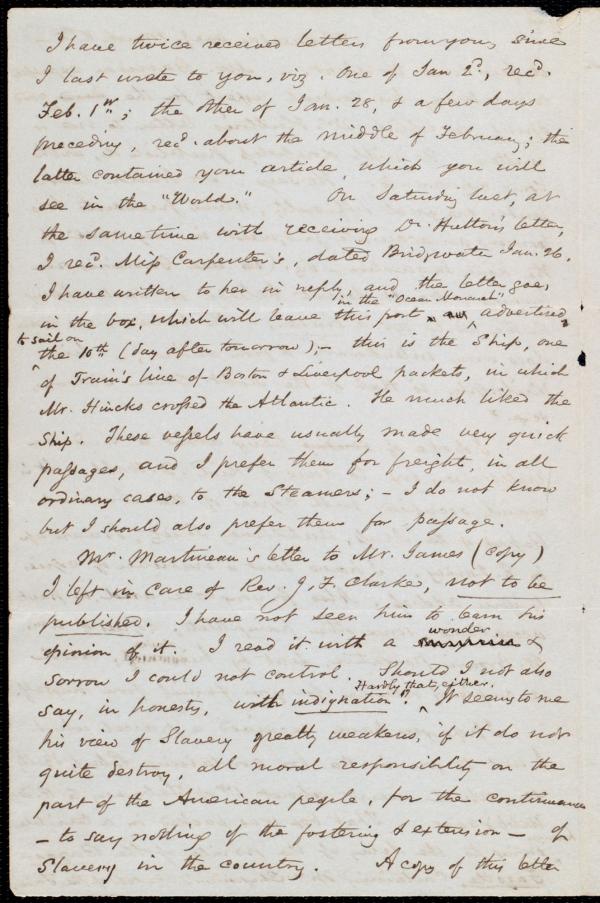 I have twice received letters from you, since
I last wrote to you, viz. One of Jan 2d., recd.
Feb. 1st.; the other of Jan. 28, & a few days
preceding, recd. about the middle of February; the
latter contained your article, which you will
see in the "World." On Saturday last, at
the same time with receiving Dr. Hutton's letter,
I recd. Miss Carpenter's, dated Bridgwater Jan. 26.
I have written to her in reply, and the letter goes
in the "Ocean Monarch"
in the box, which will leave this port, advertised
to sail on
the 10th (day after tomorrow);— this is the Ship, one
of Train's line of Boston & Liverpool packets, in which
Mr. Hincks crossed the Atlantic. He much liked the
Ship. These vessels have usually made very quick
passages, and I prefer them for freight, in all
ordinary cases, to the Steamers; – I do not know
but I should also prefer them for passage.
Mr. Martineau's letter to Mr. James (copy)
I left in care of Rev. J. F. Clarke, not to be
published. I have not seen him to learn his
wonder
opinion of it. I read it with a &
sorrow I could not control. Should I not also
Hardly that, either.
say, in honesty, with indignation? It seems to me
his view of Slavery greatly weakens, if it do not
quite destroy, all moral responsibility on the
part of the American people, for the continuance
– to say nothing of the fostering & extension – of
Slavery in the country. A copy of this letter